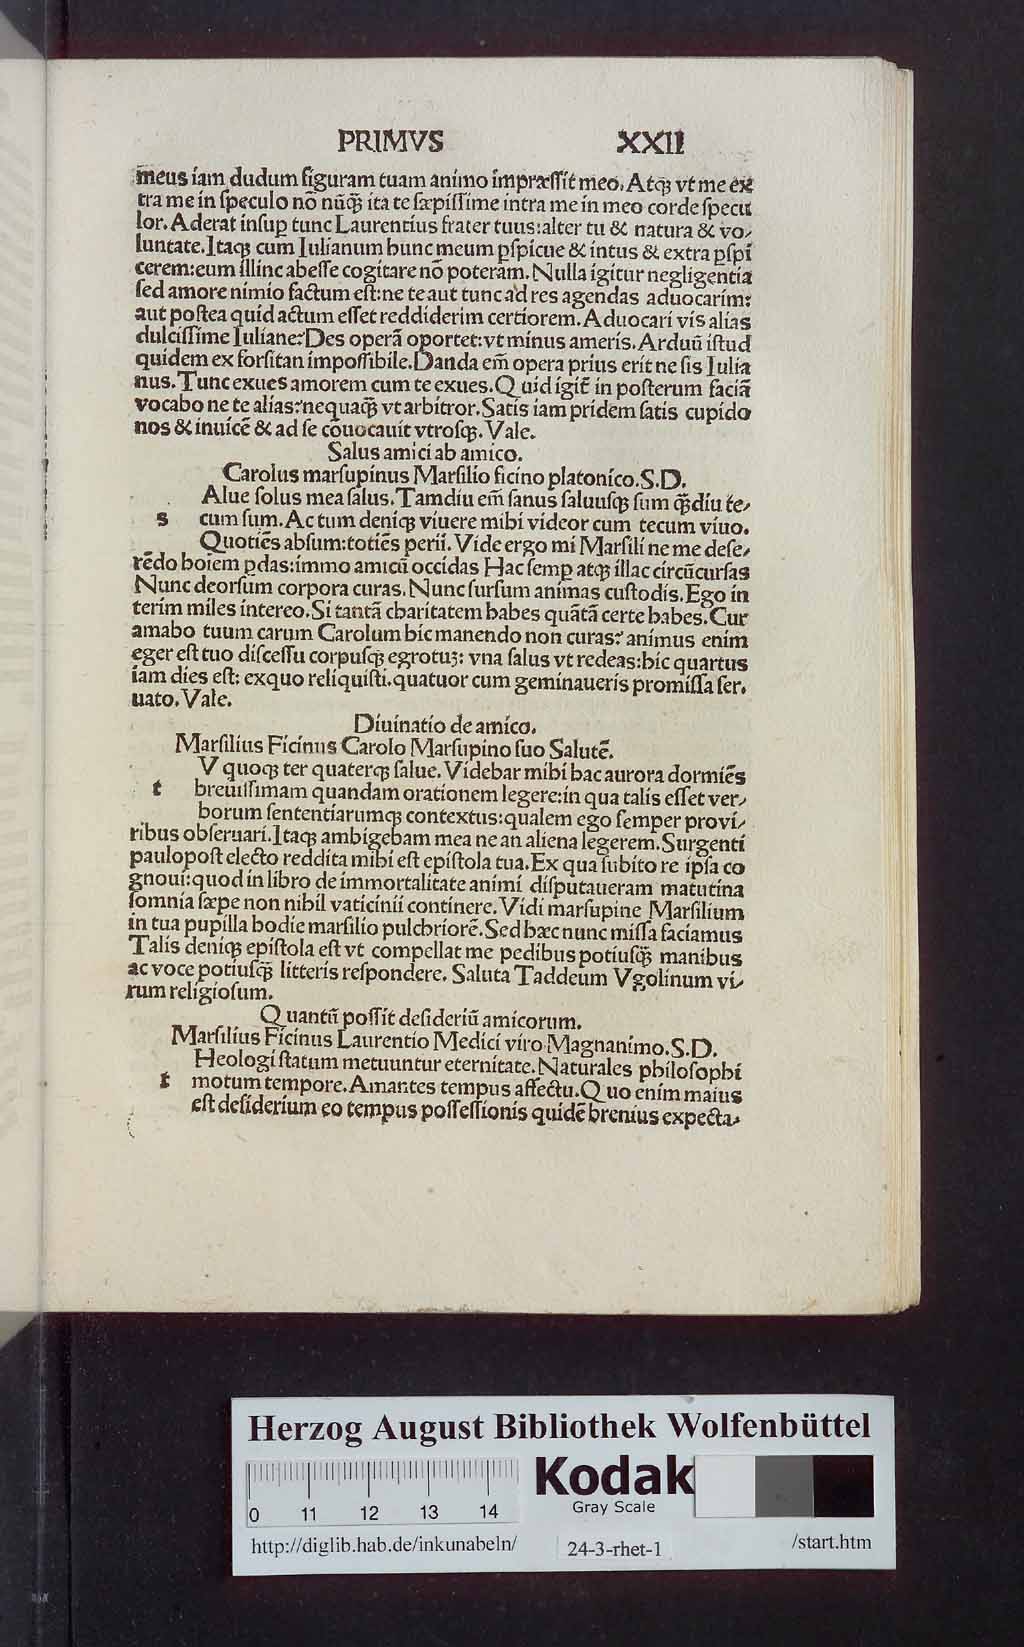 PRIMVS XXII
meus iam dudum figuram tuam animo impræssit meo. Atq̃ vt me ex
tra me in speculo nõ nũq̃ ita te sæpissime intra me in meo corde specu
lor. Aderat insup̱ tunc Laurentius frater tuus:alter tu & natura & vo⸗
luntate. Itaq̃ cum Iulianum hunc meum p̱spicue & intus & extra p̱spi
cerem:eum illinc abesse cogitare nõ poteram. Nulla igitur negligentia
sed amore nimio factum est:ne te aut tunc ad res agendas aduocarim:
aut postea quid actum esset reddiderim certiorem. Aduocari vis alias
dulcissime Iuliane? Des operã oportet:vt minus ameris. Arduũ istud
quidem ex forsitan impossibile. Danda em̃ opera prius erit ne sis Iulia
nus. Tunc exues amorem cum te exues. Quid igit̃ in posterum faciã
vocabo ne te alias? nequaq̃ vt arbitror. Satis iam pridem satis cupido
nos & inuicẽ & ad se cõuocauit vtrosq̃. Vale.
Salus amici ab amico.
Carolus marsupinus Marsilio ficino platonico. S. D.
Alue solus mea salus. Tamdiu em̃ sanus saluusq̃ sum q̃diu te⸗
s cum sum. Ac tum deniq̃ viuere mihi videor cum tecum viuo.
Quotiẽs absum:totiẽs perii. Vide ergo mi Marsili ne me dese⸗
rẽdo hoiem p̱das:immo amicũ occidas Hac semp̱ atq̃ illac circũcursas
Nunc deorsum corpora curas. Nunc sursum animas custodis. Ego in
terim miles intereo. Si tantã charitatem habes quãtã certe habes. Cur
amabo tuum carum Carolum hic manendo non curas? animus enim
eger est tuo discessu corpusq̃ egrotuʒ: vna salus vt redeas:hic quartus
iam dies est: exquo reliquisti. quatuor cum geminaueris promissa ser.
uato. Vale.
Diuinatio de amico.
Marsilius Ficinus Carolo Marsupino suo Salutẽ.
V quoq̃ ter quaterq̃ salue. Videbar mihi hac aurora dormiẽs
t breuissimam quandam orationem legere:in qua talis esset ver⸗
borum sententiarumq̃ contextus:qualem ego semper provi⸗
ribus obseruari. Itaq̃ ambigebam mea ne an aliena legerem. Surgenti
paulopost electo reddita mihi est epistola tua. Ex qua subito re ipsa co
gnoui:quod in libro de immortalitate animi disputaueram matutina
somnia sæpe non nihil vaticinii continere. Vidi marsupine Marsilium
in tua pupilla hodie marsilio pulchriorẽ. Sed hæc nunc missa faciamus
Talis deniq̃ epistola est vt compellat me pedibus potiusq̃ manibus
ac voce potiusq̃ litteris respondere. Saluta Taddeum Vgolinum vi⸗
rum religiosum.
Quantũ possit desideriũ amicorum.
Marsilius Ficinus Laurentio Medici viro Magnanimo. S. D.
Heologi statum metuuntur eternitate. Naturales philosophi
t motum tempore. Amantes tempus affectu. Quo enim maius
est desiderium eo tempus possessionis quidẽ brenius expecta⸗
Herzog August Bibliothek Wolfenbüttel
Kodak
Gray Scale
0 11 12 13 14
http://diglib.hab.de/inkunabeln/ 24-3-rhet-1 /start.htm